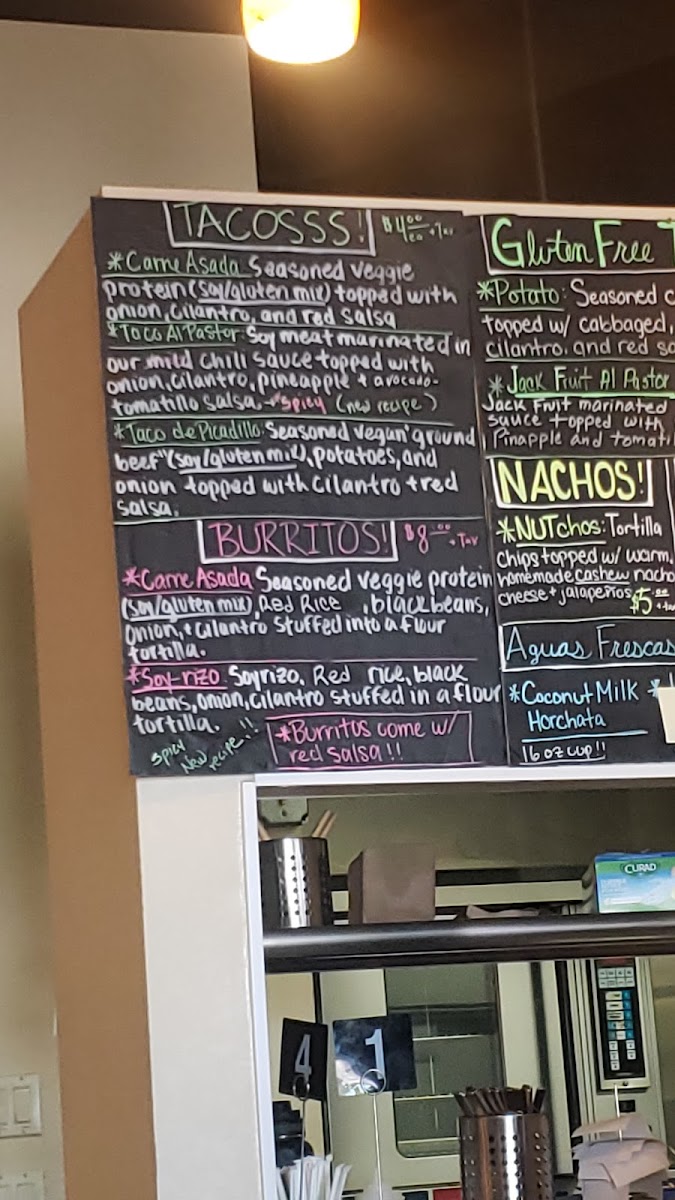 TACOSSS! $4.00 ea +Tax
*Carne Asada Seasoned veggie
protein (soy/gluten mix) topped with
onion, cilantro, and red salsa
*Taco Al Pastor: Soy meat marinated in
our mild chili sauce topped with
onion, cilantro, pineapple + avocado-
tomatillo salsa. spicy (new recipe)
*Taco de Picadillo: Seasoned vegan "ground
beef" (soy/gluten mix), potatoes, and
onion topped with cilantro + red
salsa.
BURRITOS! $8.00 +Tax
*Carne Asada Seasoned veggie protein
(soy/gluten mix), Red Rice, black beans,
onion, + cilantro stuffed into a flour
tortilla.
*Soy-rizo. Soyrizo, Red rice, black
beans, onion, cilantro stuffed in a flour
tortilla.
spicy New recipe!!
*Burritos come w/
red salsa!!
Gluten Free
*Potato: Seasoned
topped w/ cabbaged,
cilantro, and red
*Jack Fruit Al Pastor
Jack Fruit marinated
sauce topped with
Pinapple and
NACHOS!
*NUTchos: Tortilla
chips topped w/ warm,
homemade cashew nacho
cheese + jalapeños $5.00
Aguas Frescas
*Coconut Milk *
Horchata
16 oz cup!!
CURAD
4
1